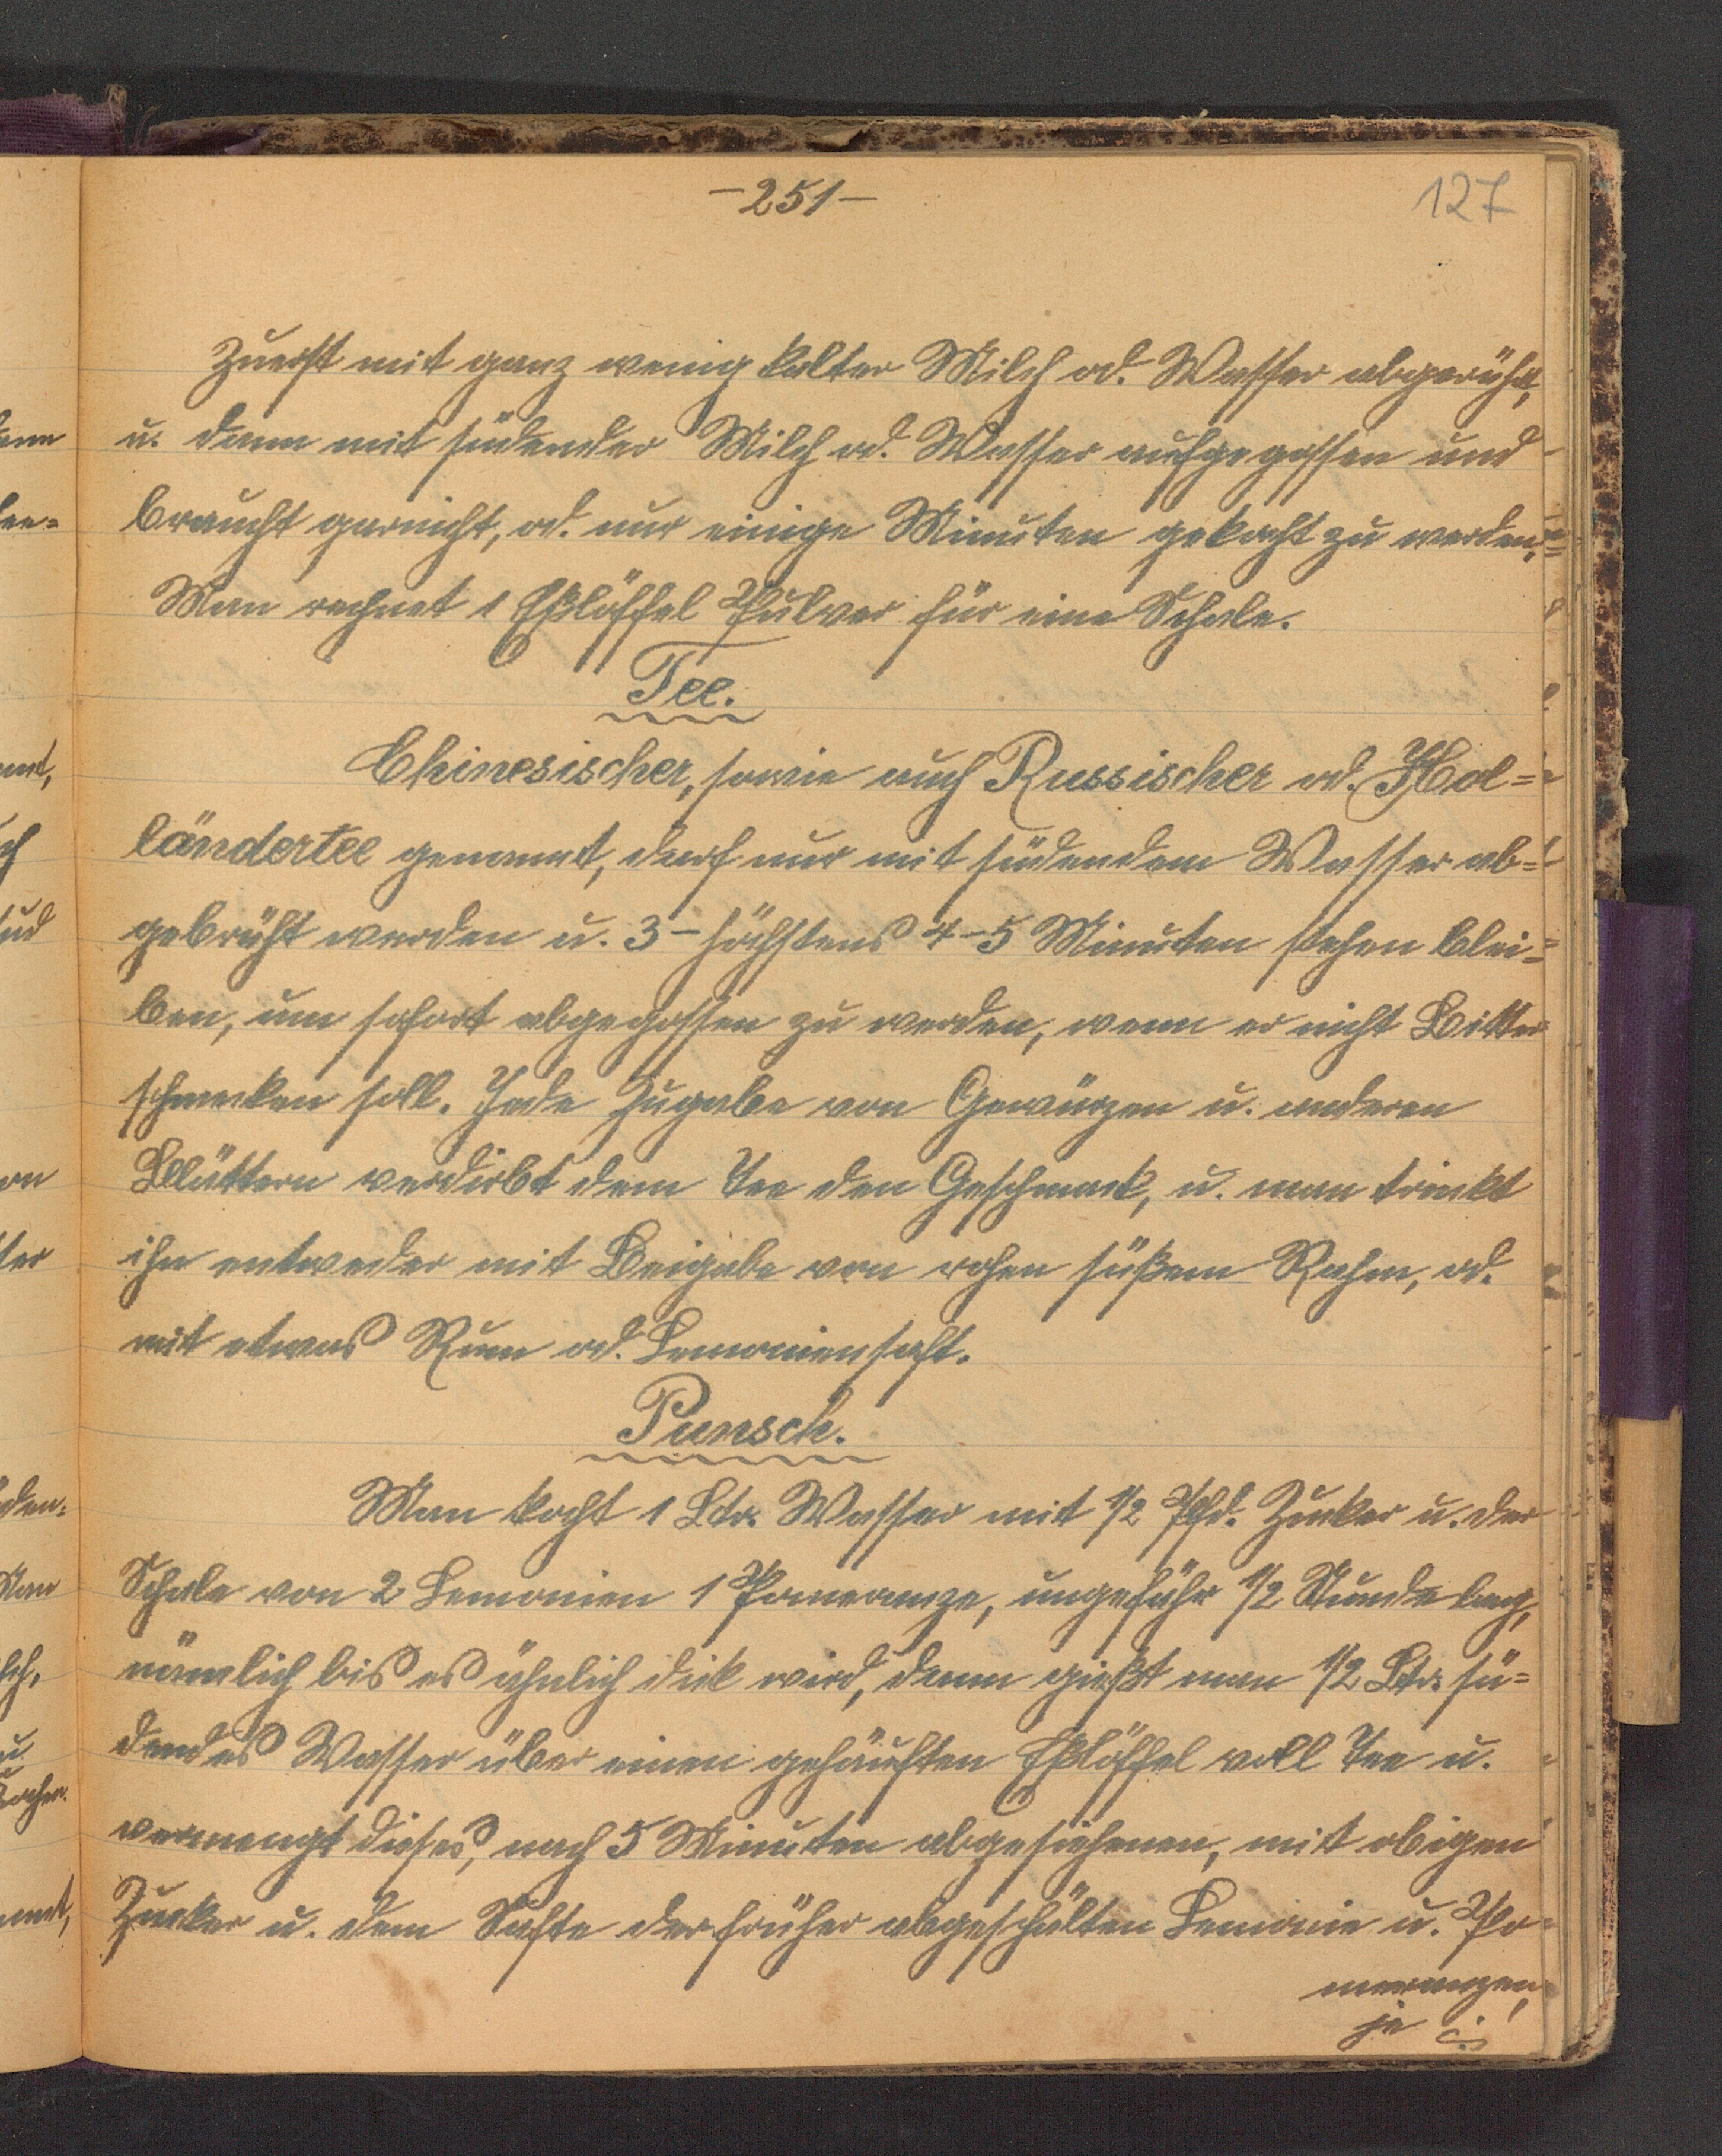 -251-
127
Zuerst mit ganz wenig kalter Milch od. Wasser abgerührt,
u. dann mit südender Milch od. Wasser aufgegossen und
braucht garnicht, od. nur einige Minuten gekocht zu werden.
Man rechnet 1 Eßlöffel Pulver für eine Schale.
Tee.
Chinesischer, sowie auch Russischer od. Hol=
ländertee genannt, darf nur mit südendem Wasser ab=
gebrüht werden u. 3- höchstens 4-5 Minuten stehen blei=
ben, um sofort abgegossen zu werden, wenn er nicht Bitter
schmecken soll. Jede Zugabe von Gewürzen u. anderen
Blättern verdirbt dem Tee den Geschmack, u. man trinkt
ihn entweder mit Beigabe von rohen süßem Rahm, od.
mit etwas Rum od. Lemoniensaft.
Punsch.
Man kocht 1 Ltr. Wasser mit 1/2 Pfd. Zucker u. der
Schale von 2 Lemonien 1 Pomeranze, ungefähr 1/2 Stunde lang,
nämlich bis es ähnlich dick wird, dann gießt man 1/2 Ltr. sü=
dendes Wasser über einen gehäuften Eßlöffel voll Tee u.
vermengt dieses, nach 5 Minuten abgesiehenen, mit obigen
Zucker u. dem Safte der früher abgeschälten Lemonie u. Po=
meranzen,
je